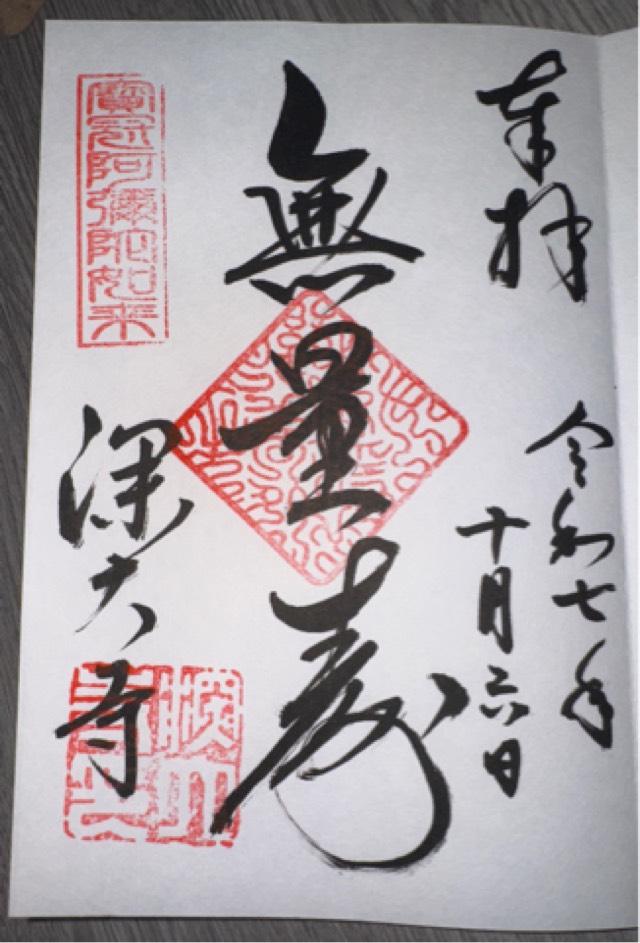 奉拝
令和七年
十月六日
無量寿
寳冠阿彌陀如来
深大寺